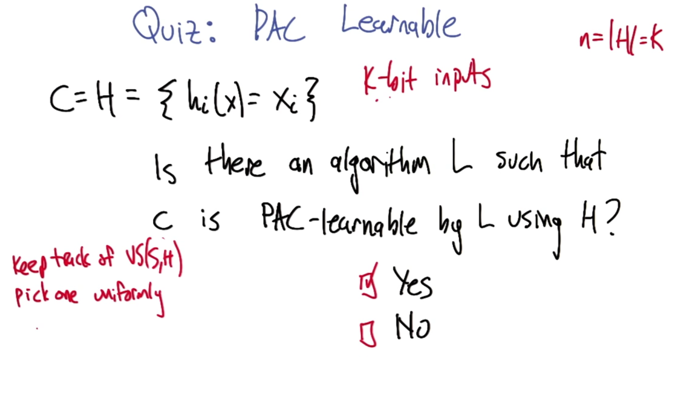 Quiz: PAC Learnable
n=|H|=k
C=H= { hi(x)= xi }
k-bit inputs
Is there an algorithm L such that
C is PAC-learnable by L using H?
keep track of VS(S,H)
pick one uniformly
Yes
No